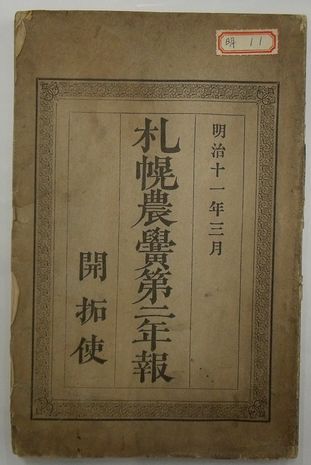 明 11
明治十一年三月
札幌農黌第二年報
開拓使